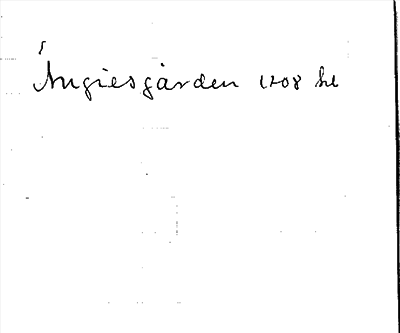 Ängiesgården 1708 hl